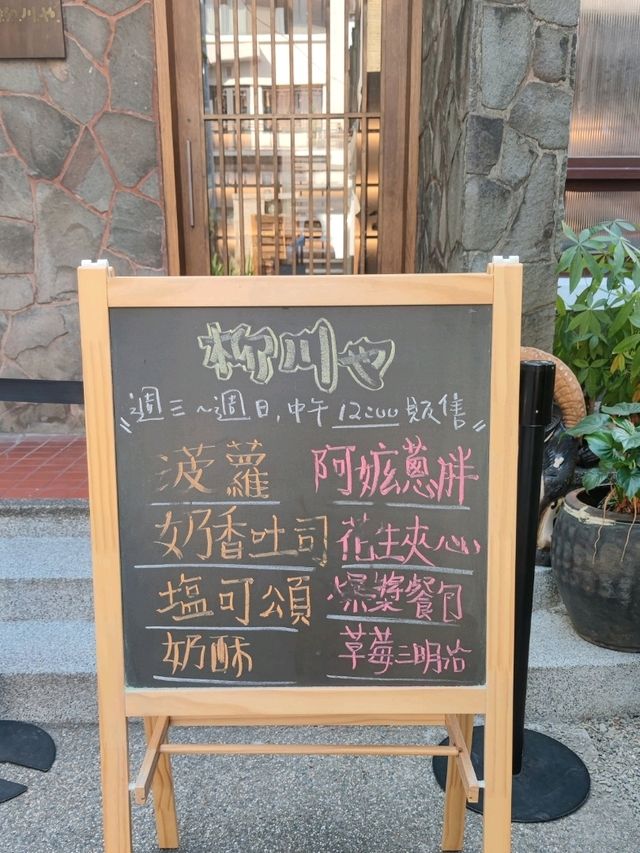 柳川や
柳川や
"週三~週日,中午12:00販售"
菠蘿 阿嬤蔥胖
奶香吐司 花生夾心
塩可頌 爆漿餐包
奶酥 草莓三明治